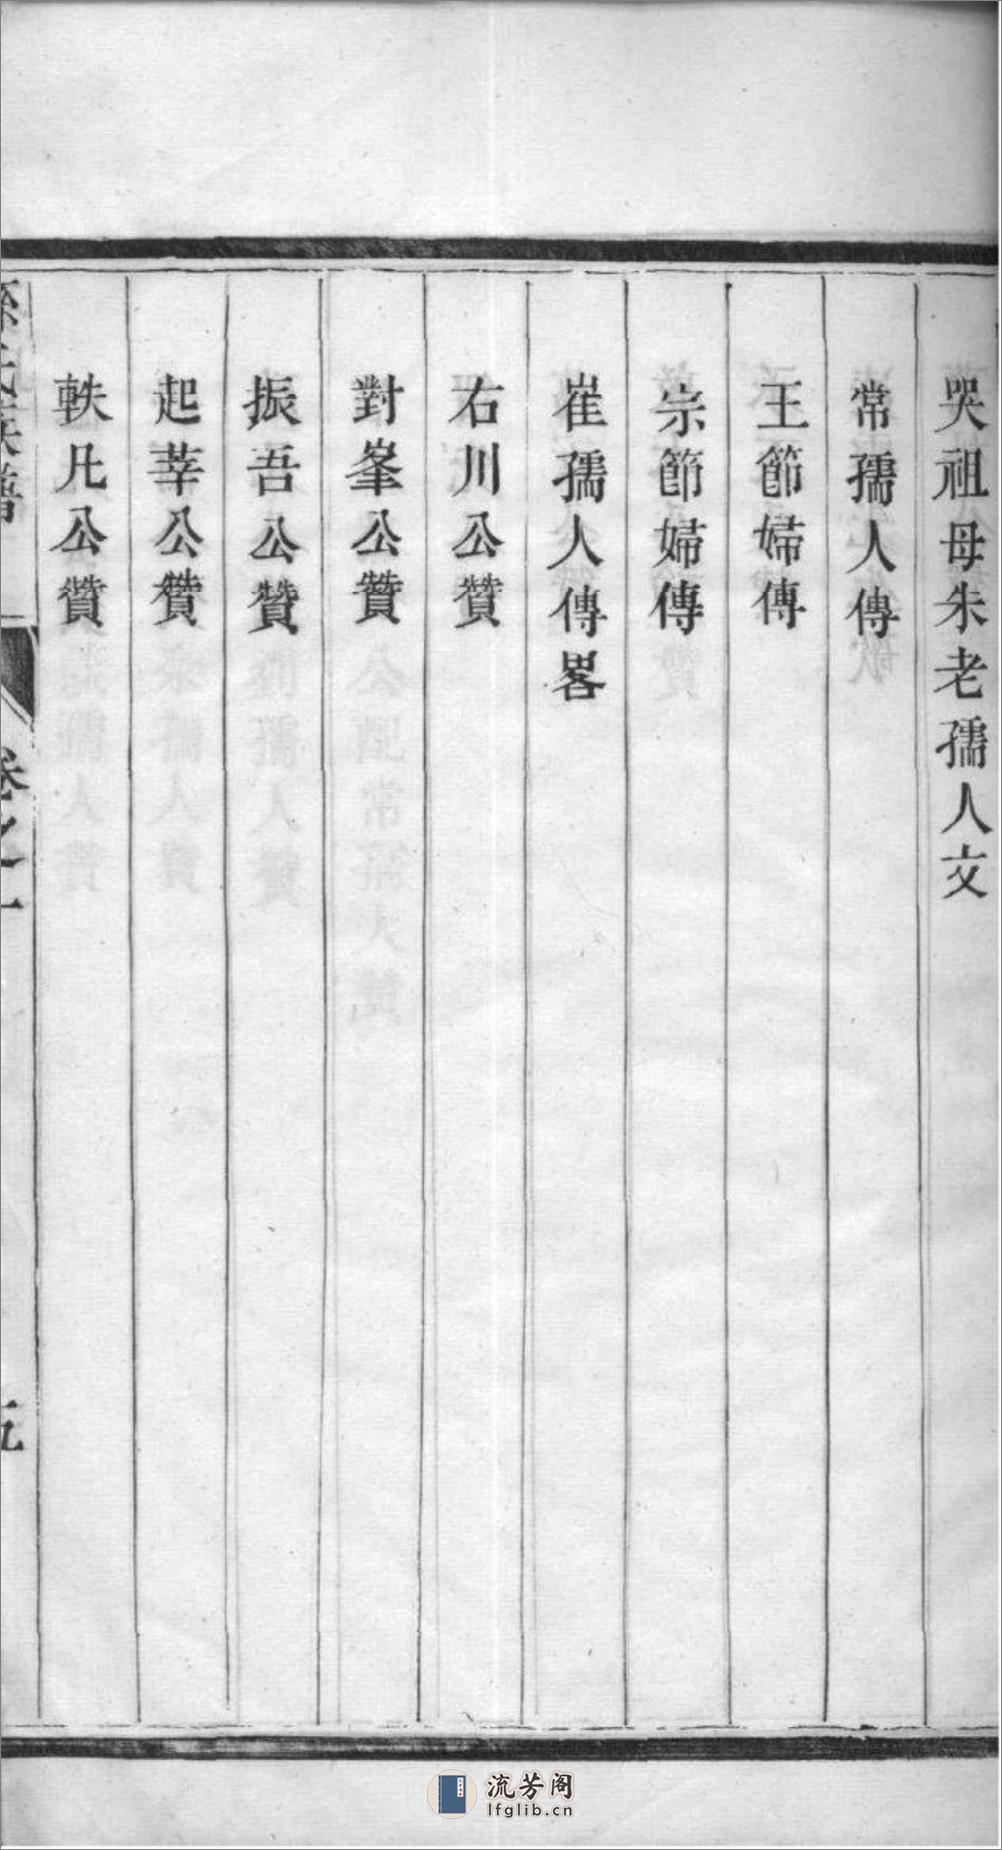 哭祖母朱老孺人文
常孺人傳
王節婦傳
宗節婦傳
崔孺人傳畧
右川公贊
對峯公贊
振吾公贊
起莘公贊
軼凡公贊
孫氏族譜
卷之一
五
流芳阁
lfglib.cn